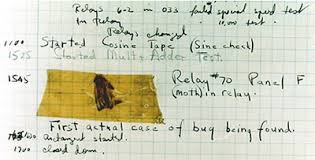 Relays 6-2 in 033 failed special speed test
in relay 11,000 test.
Relays changed
1100 Started Cosine Tape (Sine check)
1525 Started Mult+ Adder Test.
1545 Relay #70 Panel F
(moth) in relay.
First actual case of bug being found.
1630 antangent started.
1700 closed down.